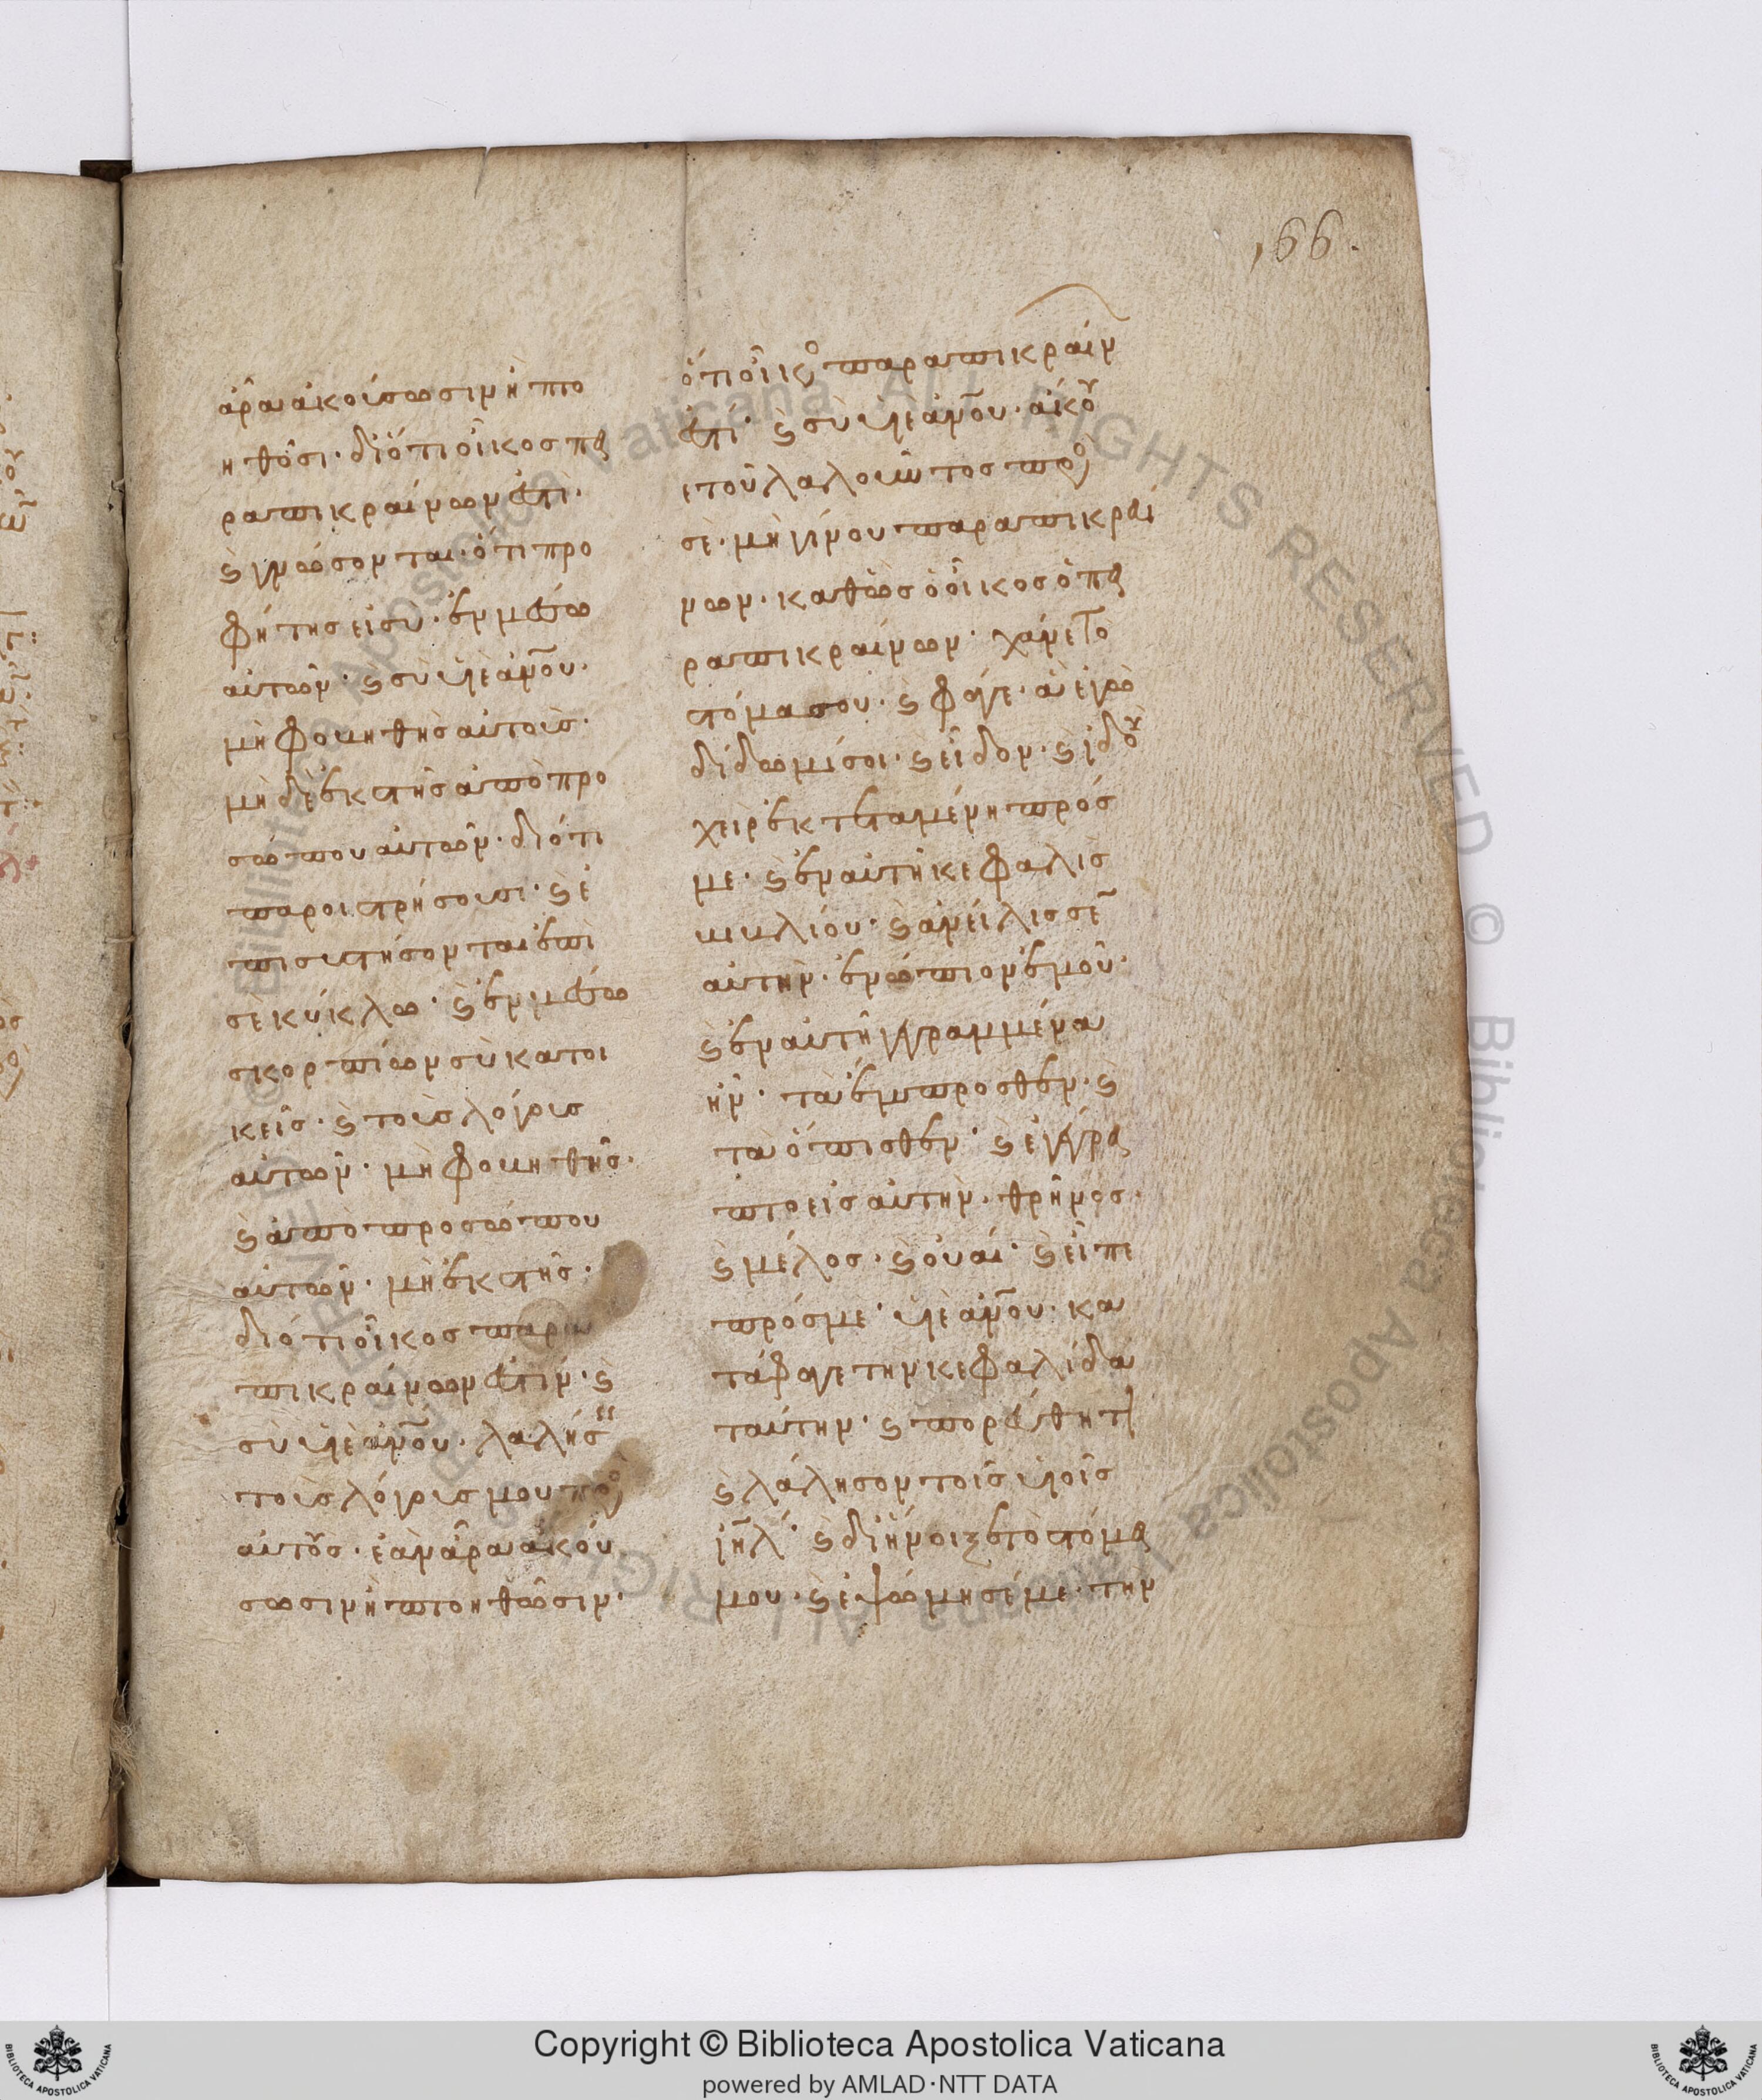 166.
ἆρα ἀκούσωσιν ἢ πτο
ηθῶσι· διότι οἶκος πα
ραπικραίνων ἐστι·
ϛ γνώσονται· ὅτι προ
φήτης εἶ σὺ· ἐν μέσω
αὐτῶν· ϛ σὺ υἱὲ ἀνου·
μὴ φοβηθῆς αὐτοὺς·
μὴ δὲ ἐκστῆς ἀπὸ προ
σώπου αὐτῶν· διότι
παροιστρήσουσι· ϛ ἐ
πισυστήσονται ἐπὶ
σὲ κύκλω· ϛ ἐν μέσω
σκορπίων σὺ κατοι
κεῖς· ϛ τοὺς λόγους
αὐτῶν· μὴ φοβηθῆς·
ϛ ἀπὸ προσώπου
αὐτῶν· μὴ ἐκστῆς·
διότι οἶκος παρα
πικραίνων ἐστίν· ϛ
σὺ υἱὲ ἀνου· λαλήσεις
τοὺς λόγους μου πρὸς
αὐτοὺς· ἐὰν ἆρα ἀκού
σωσιν ἢ πτοηθῶσιν·
ὅτι οἶκος παραπικραίν
ἐστί· ϛ σὺ υἱὲ ἀνου· ἄκου
ε τοῦ λαλοῦντος πρὸς
σὲ· μὴ γίνου παραπικραί
νων· καθὼς ὁ οἶκος ὁ πα
ραπικραίνων· χάνε τὸ
στόμα σου· ϛ φάγε· ἃ ἐγὼ
δίδωμί σοι· ϛ εἶδον· ϛ ἰδοὺ
χεὶρ ἐκτεταμένη πρός
με· ϛ ἐν αὐτῆ κεφαλὶς
βιβλίου· ϛ ἀνείλισσεν
αὐτὴν· ἐνώπιον ἐμοῦ·
ϛ ἐν αὐτῆ γεγραμμένα
ἦν· τὰ ἔμπροσθεν· ϛ
τὰ ὄπισθεν· ϛ ἐγέγρα
πτο εἰς αὐτὴν· θρῆνος·
ϛ μέλος· ϛ οὐαί· ϛ εἶπε
πρός με· υἱὲ ἀνου· κα
τάφαγε τὴν κεφαλίδα
ταύτην· ϛ πορεύθητι
ϛ λάλησον τοῖς υἱοῖς
ιηλ· ϛ διήνοιξε τὸ στόμα
μου· ϛ ἐψώμησέ με· τὴν
Copyright © Biblioteca Apostolica Vaticana
powered by AMLAD·NTT DATA